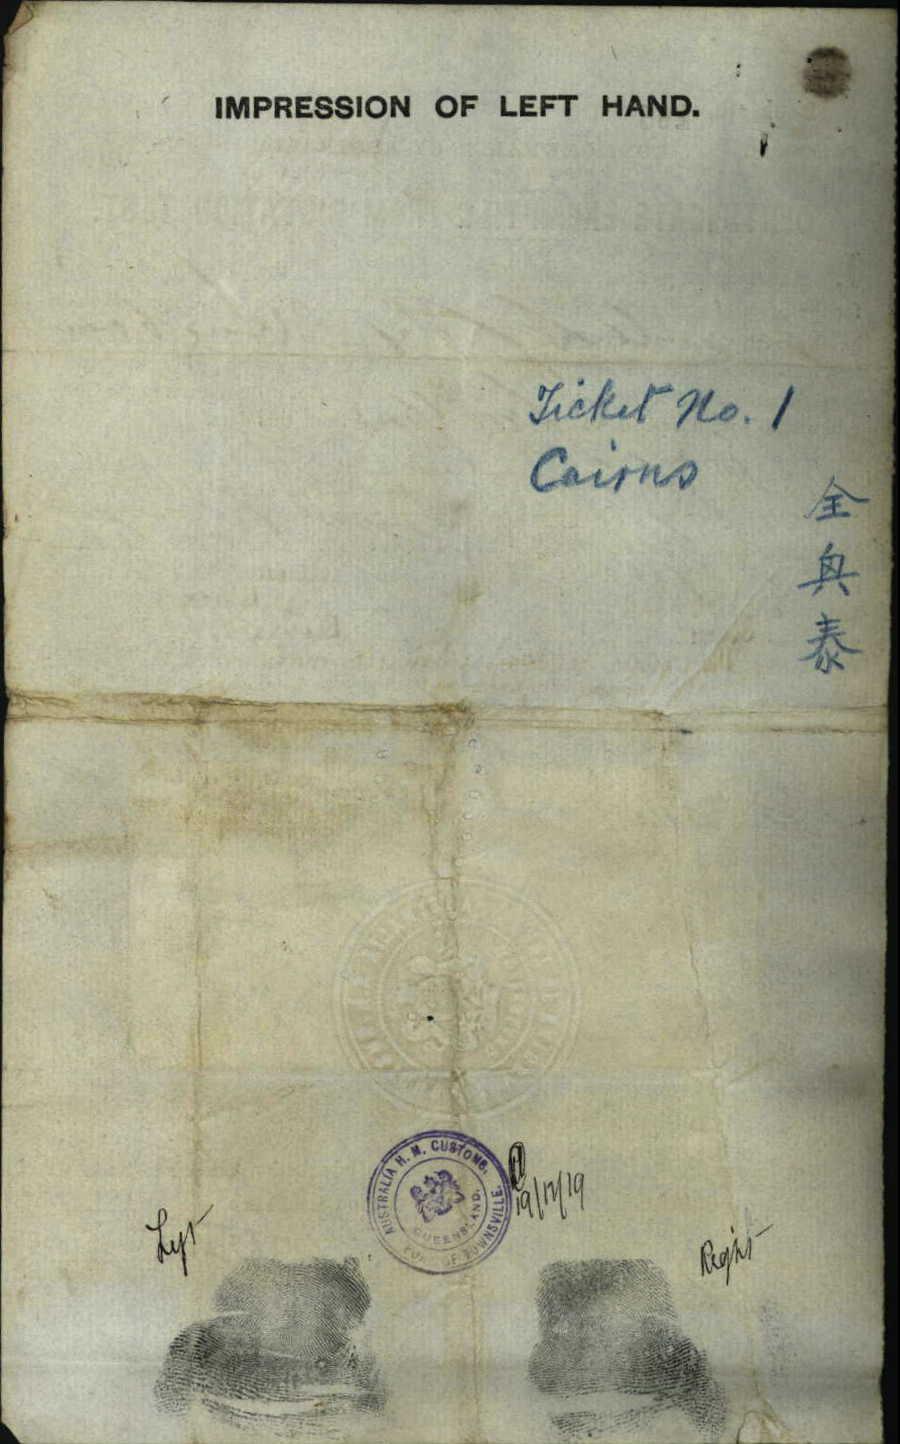 IMPRESSION OF LEFT HAND.
Ticket No. 1
Cairns
全
泰
AUSTRALIA H. M. CUSTOMS.
QUEENSLAND.
TOWNSVILLE.
19/12/19
Left
Right